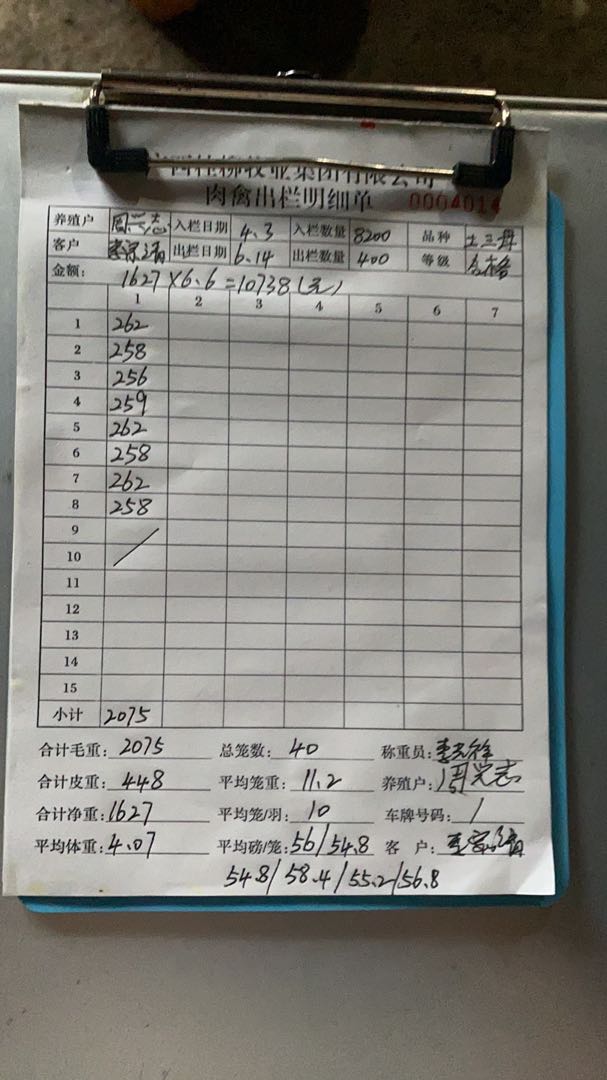 柳牧业集团有限公司
肉禽出栏明细单 0004014
养殖户 周兴志 入栏日期 4.3 入栏数量 8200 品种 土三丹
客户 出栏日期 6.14 出栏数量 400 等级 合格
金额: 1627×6.6=10738(元)
1 2 3 4 5 6 7
1 262
2 258
3 256
4 259
5 262
6 258
7 262
8 258
9
10
11
12
13
14
15
小计 2075
合计毛重: 2075 总笼数: 40 称重员:
合计皮重: 448 平均笼重: 11.2 养殖户: 周兴志
合计净重: 1627 平均笼/羽: 10 车牌号码: /
平均体重: 4.07 平均磅/笼: 56/54.8 客 户:
54.8/58.4/55.2/56.8